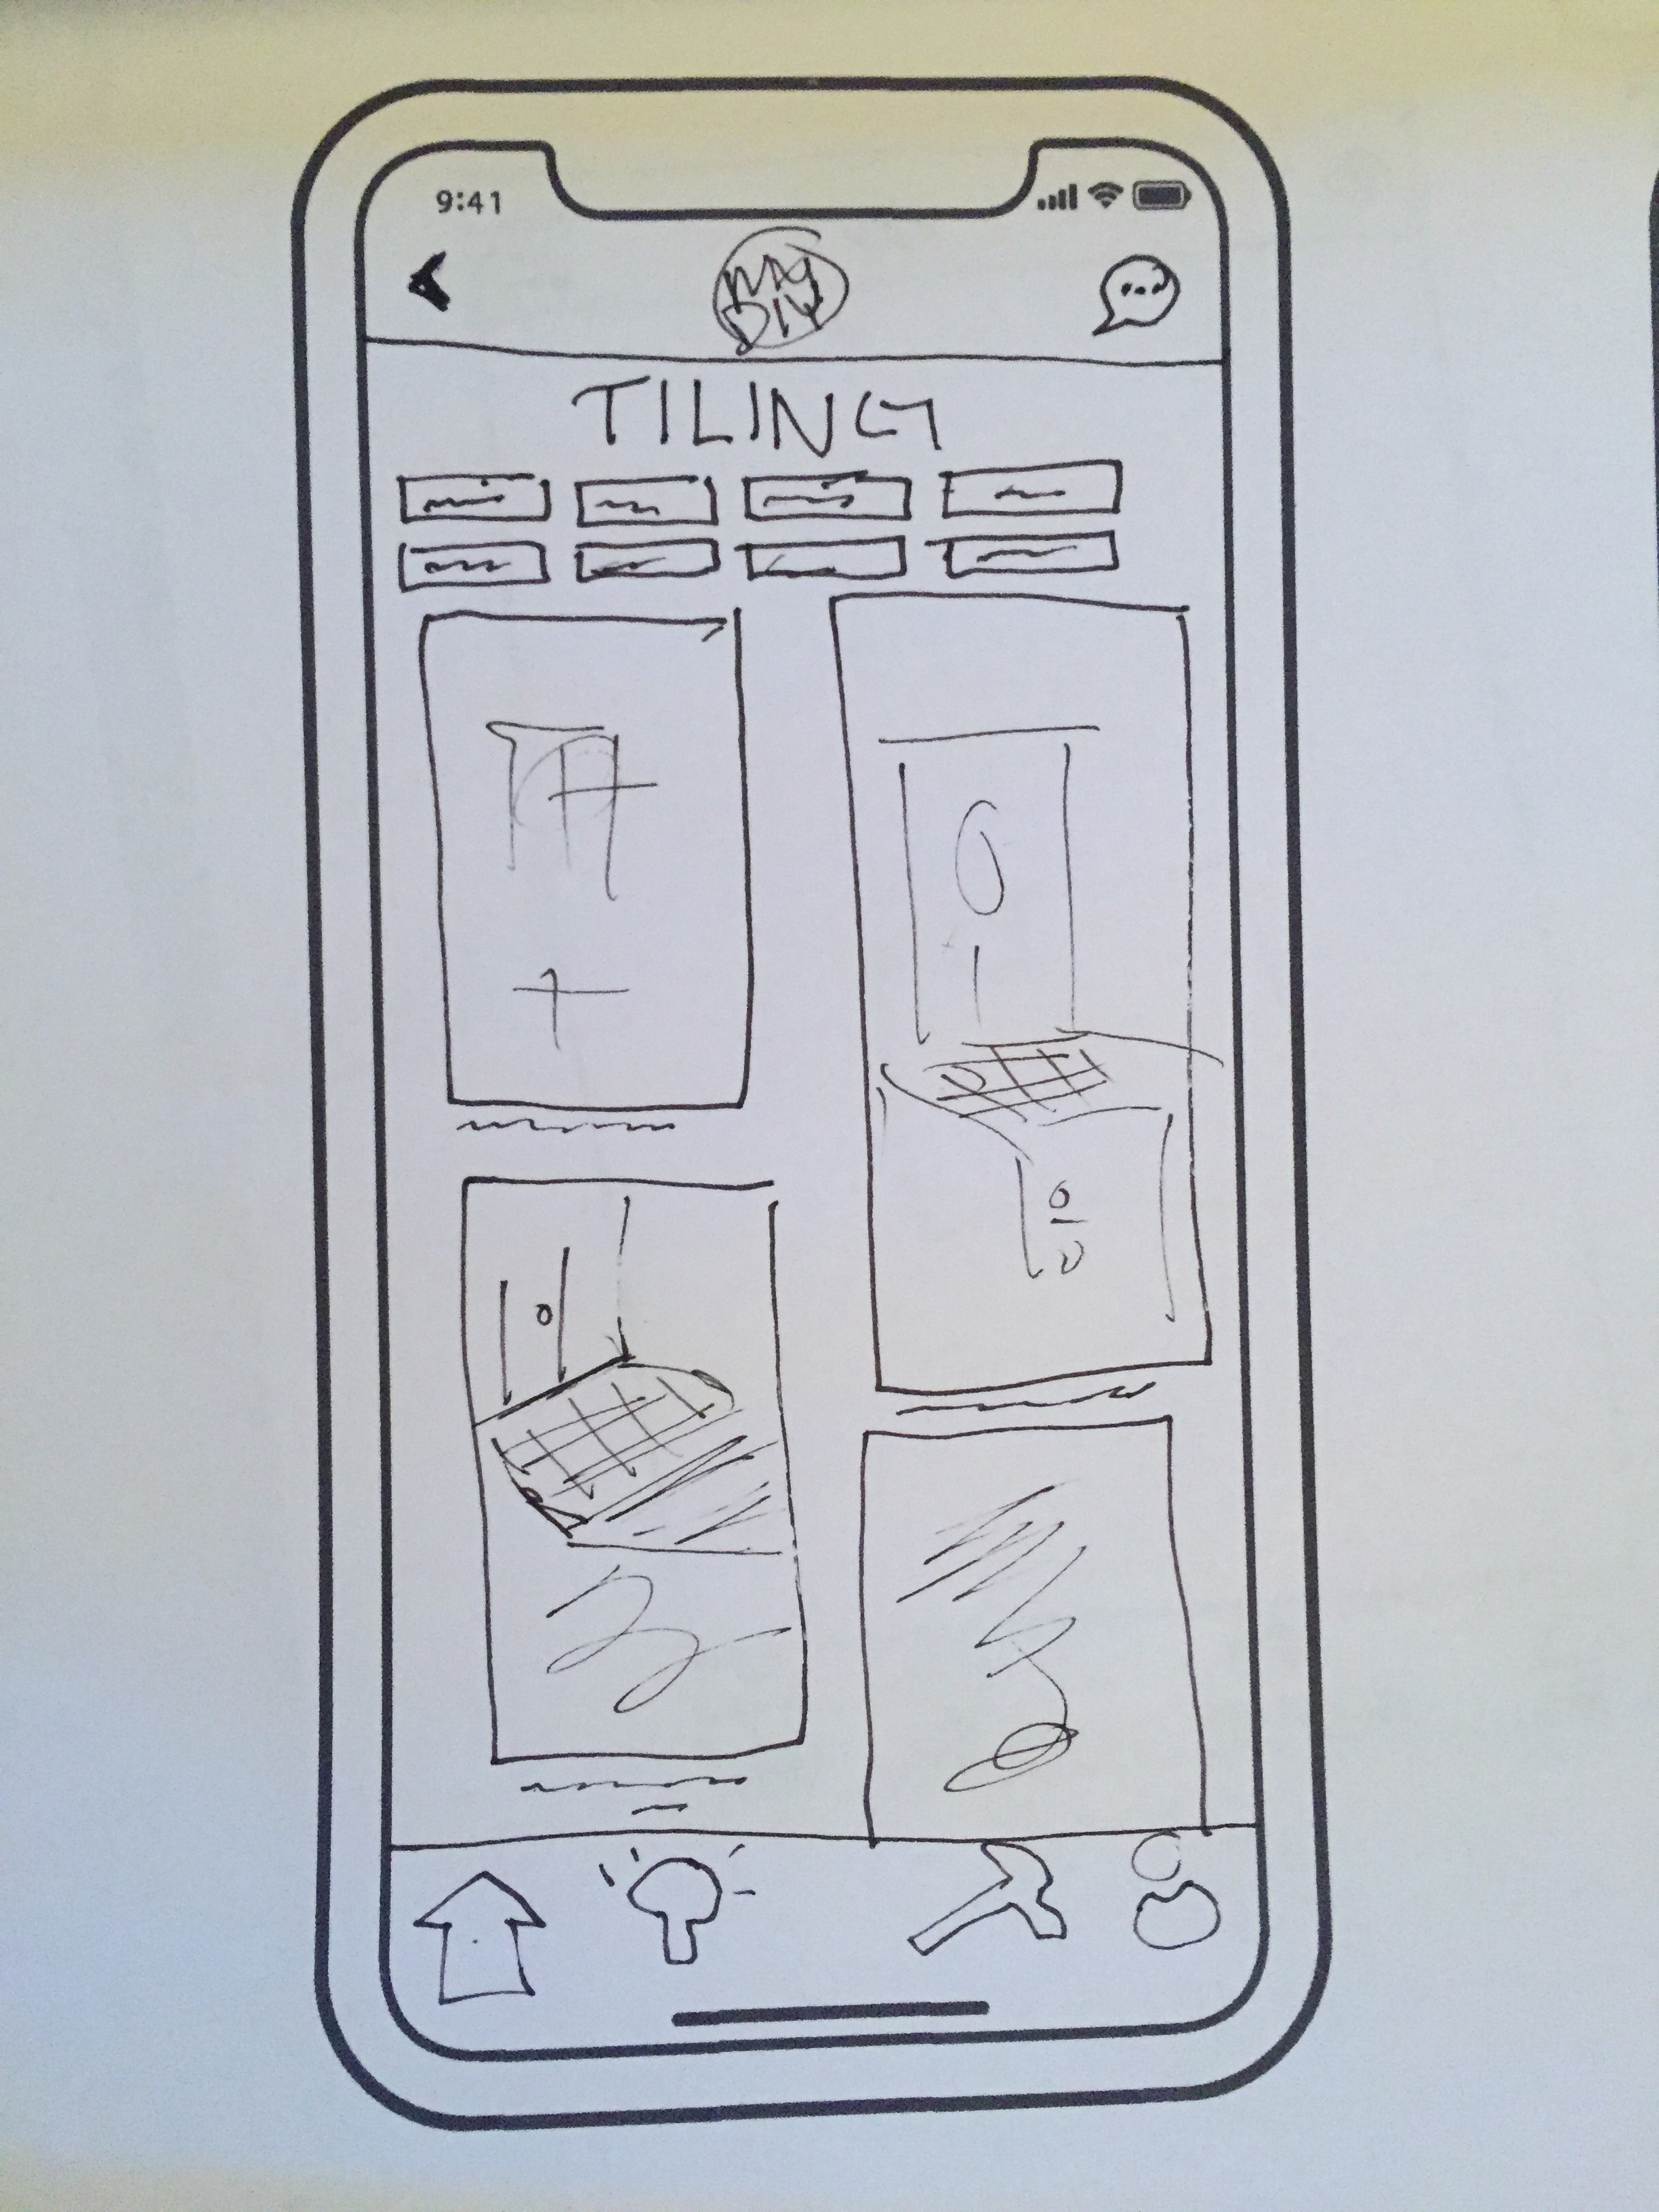 9:41
MY
DIY
TILING